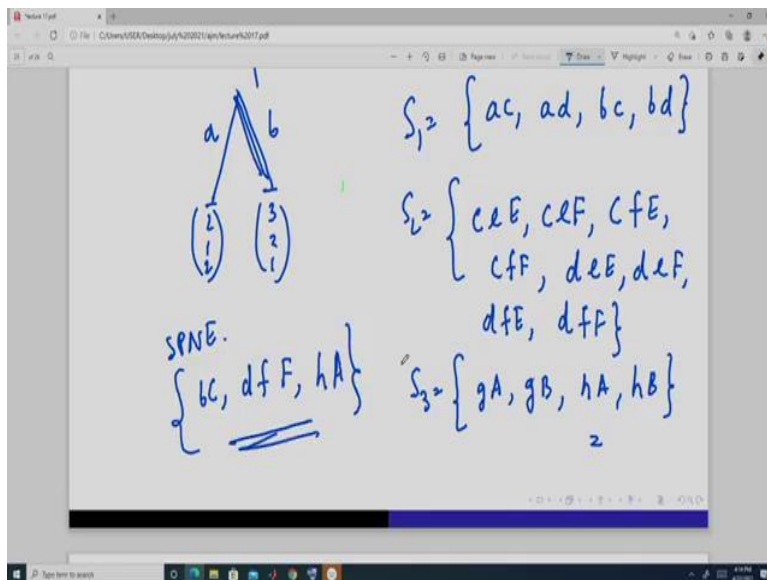 lecture 17.pdf
File
C:/Users/USER/Desktop/july%202021/ajm/lecture%2017.pdf
Page view
Draw
Highlight
Erase
1
a b
2 3
1 2
2 1
S₁ = { ac, ad, bc, bd }
S₂ = { ceE, ceF, cfE,
cfF, deE, deF,
dfE, dfF }
SPNE.
{ bc, dfF, hA }
S₃ = { gA, gB, hA, hB }
2
Type here to search
4:14 PM